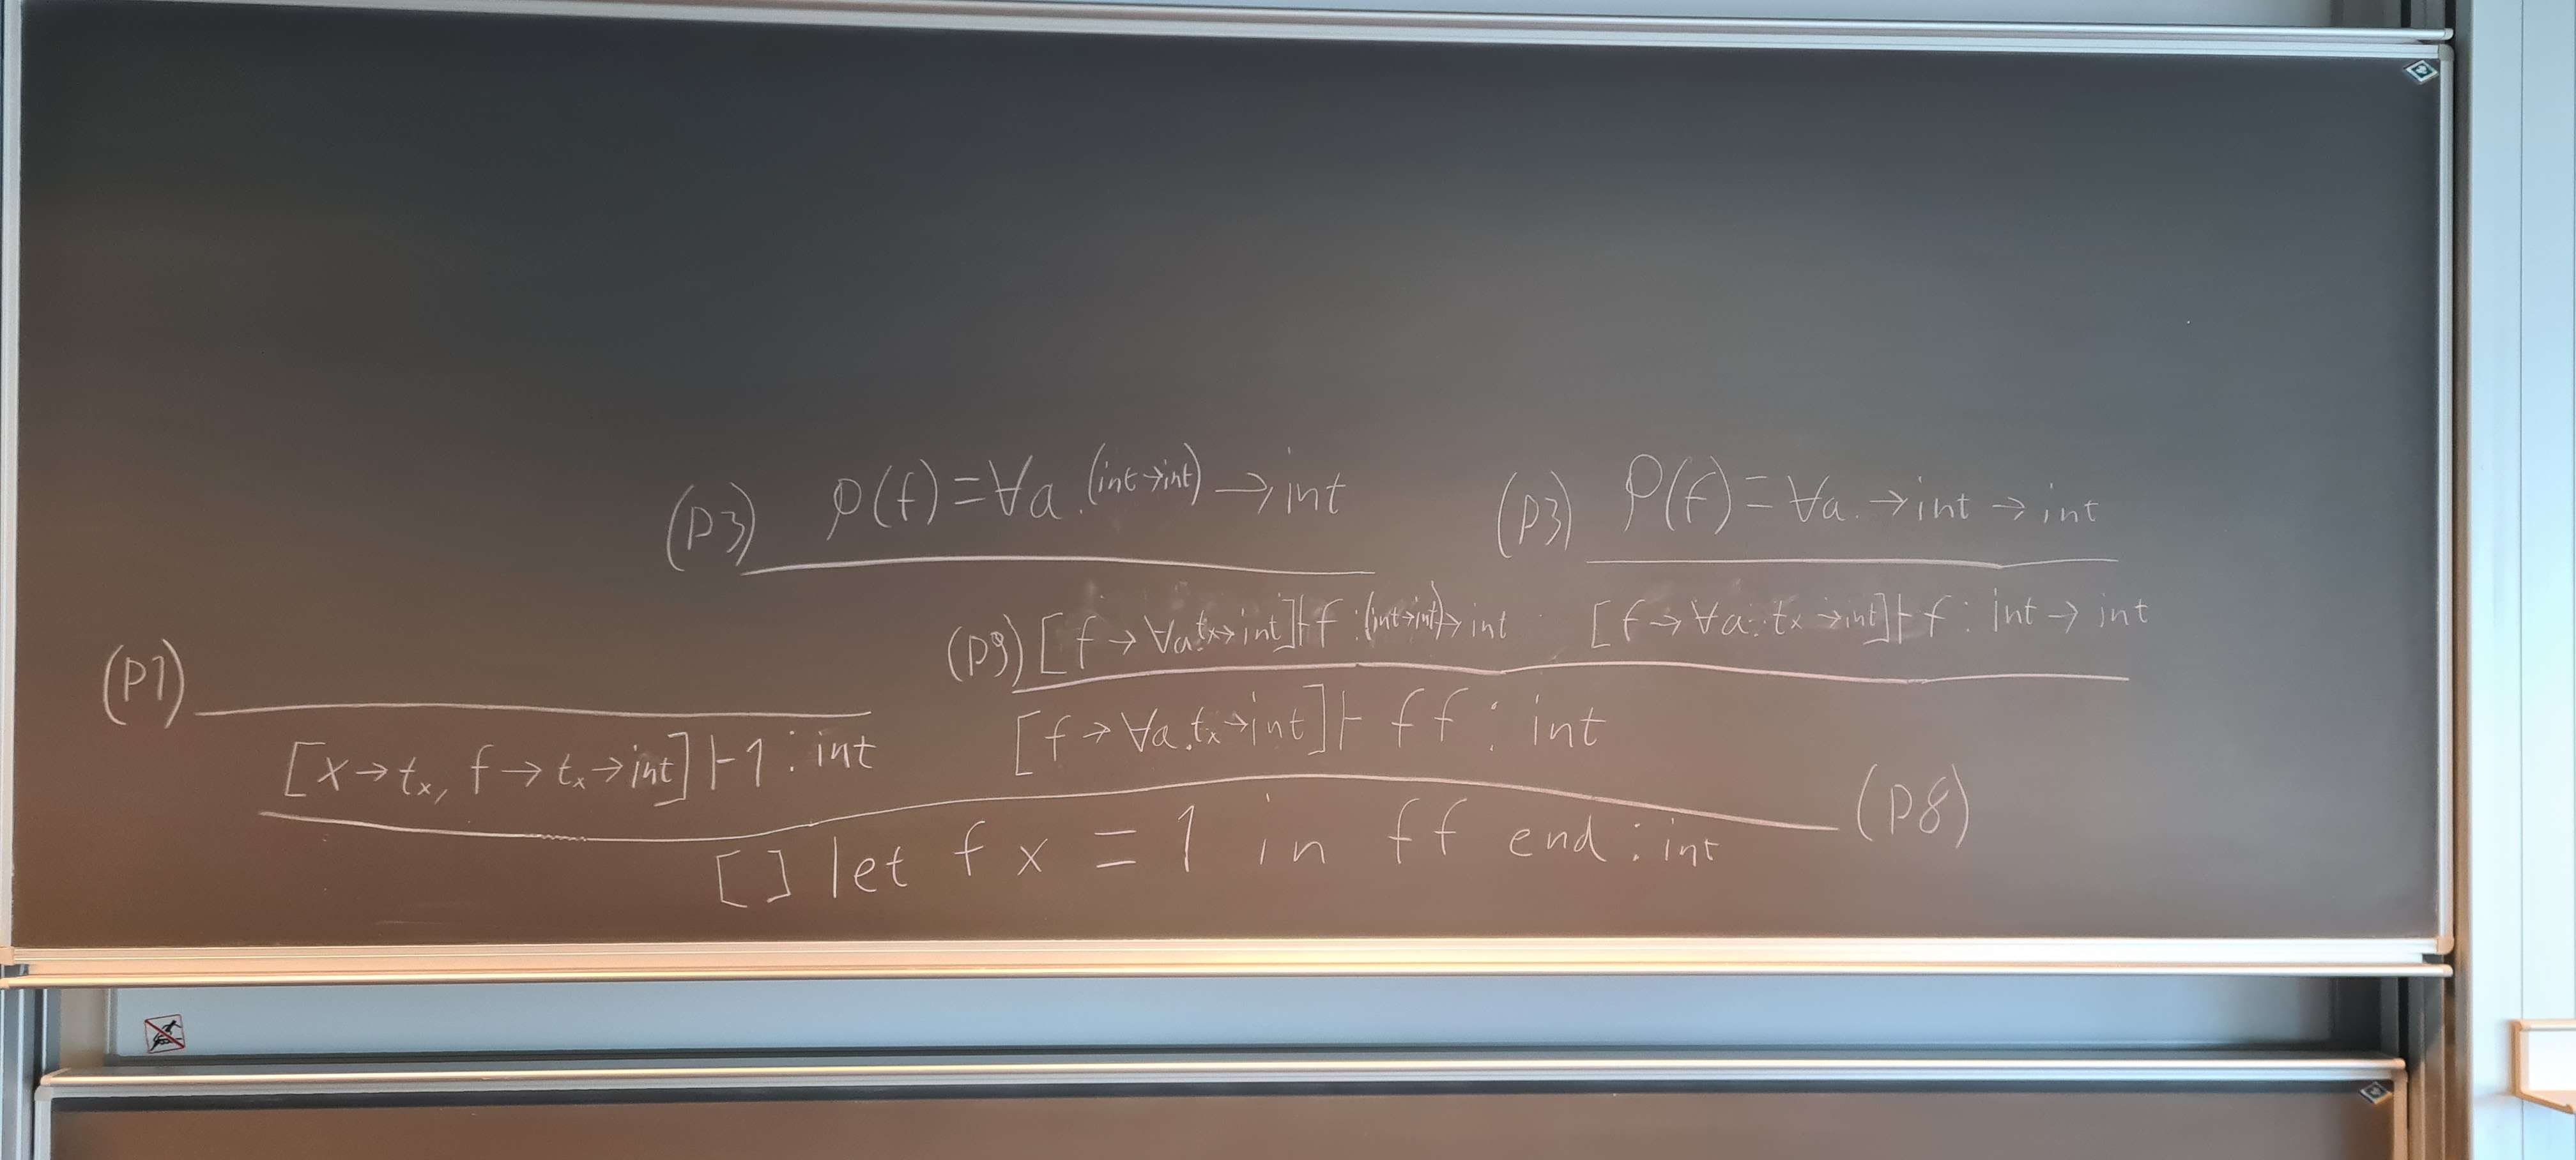 (p3) ρ(f) = ∀a.(int→int) → int
(p3) ρ(f) = ∀a. → int → int
(p9) [f → ∀a.tₓ→int] ⊢ f : (int→int) → int
[f → ∀a.tₓ → int] ⊢ f : int → int
(p1)
[x → tₓ, f → tₓ → int] ⊢ 1 : int
[f → ∀a.tₓ → int] ⊢ f f : int
(p8)
[ ] let f x = 1 in f f end : int